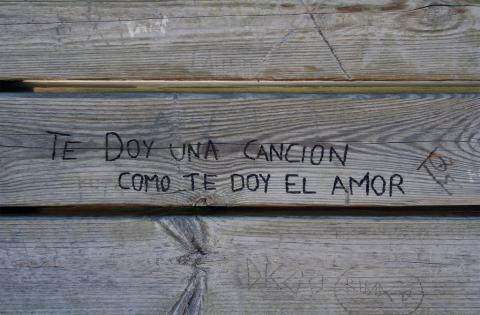 TE DOY UNA CANCION
COMO TE DOY EL AMOR